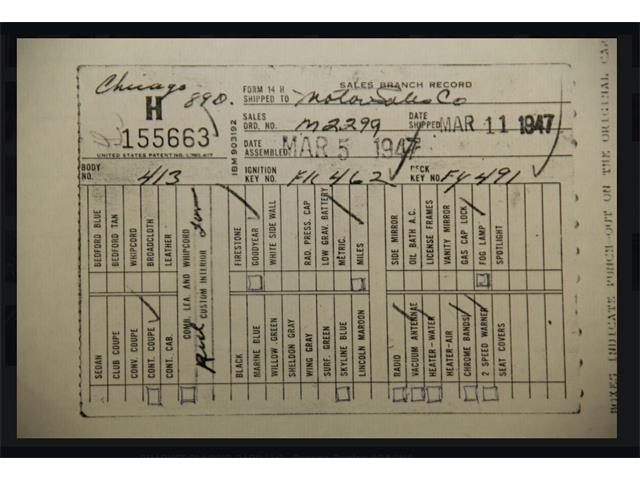 Chicago 890. FORM 14 H SALES BRANCH RECORD
H SHIPPED TO Motor Sales Co
155663 SALES ORD. NO. M2299 DATE SHIPPED MAR 11 1947
UNITED STATES PATENT NO. IBM 903192 DATE ASSEMBLED MAR 5 1947
BODY NO. 413 IGNITION KEY NO. FK 462 DECK KEY NO. FY 491
BEDFORD BLUE
BEDFORD TAN
WHIPCORD
BROADCLOTH
LEATHER
COMB. LEA. AND WHIPCORD
CUSTOM INTERIOR
Red
FIRESTONE
GOODYEAR
WHITE SIDE WALL
RAD. PRESS. CAP
LOW GRAV. BATTERY
METRIC.
MILES
SIDE MIRROR
OIL BATH A.C.
LICENSE FRAMES
VANITY MIRROR
GAS CAP LOCK
FOG LAMP
SPOTLIGHT
SEDAN
CLUB COUPE
CONV. COUPE
CONT. COUPE
CONT. CAB.
BLACK
MARINE BLUE
WILLOW GREEN
SHELDON GRAY
WING GRAY
SURF. GREEN
SKYLINE BLUE
LINCOLN MAROON
RADIO
VACUUM ANTENNAE
HEATER-WATER
HEATER-AIR
CHROME BANDS
2 SPEED WARNER
SEAT COVERS
BOXES INDICATE PUNCH-OUT ON THE ORIGINAL CA